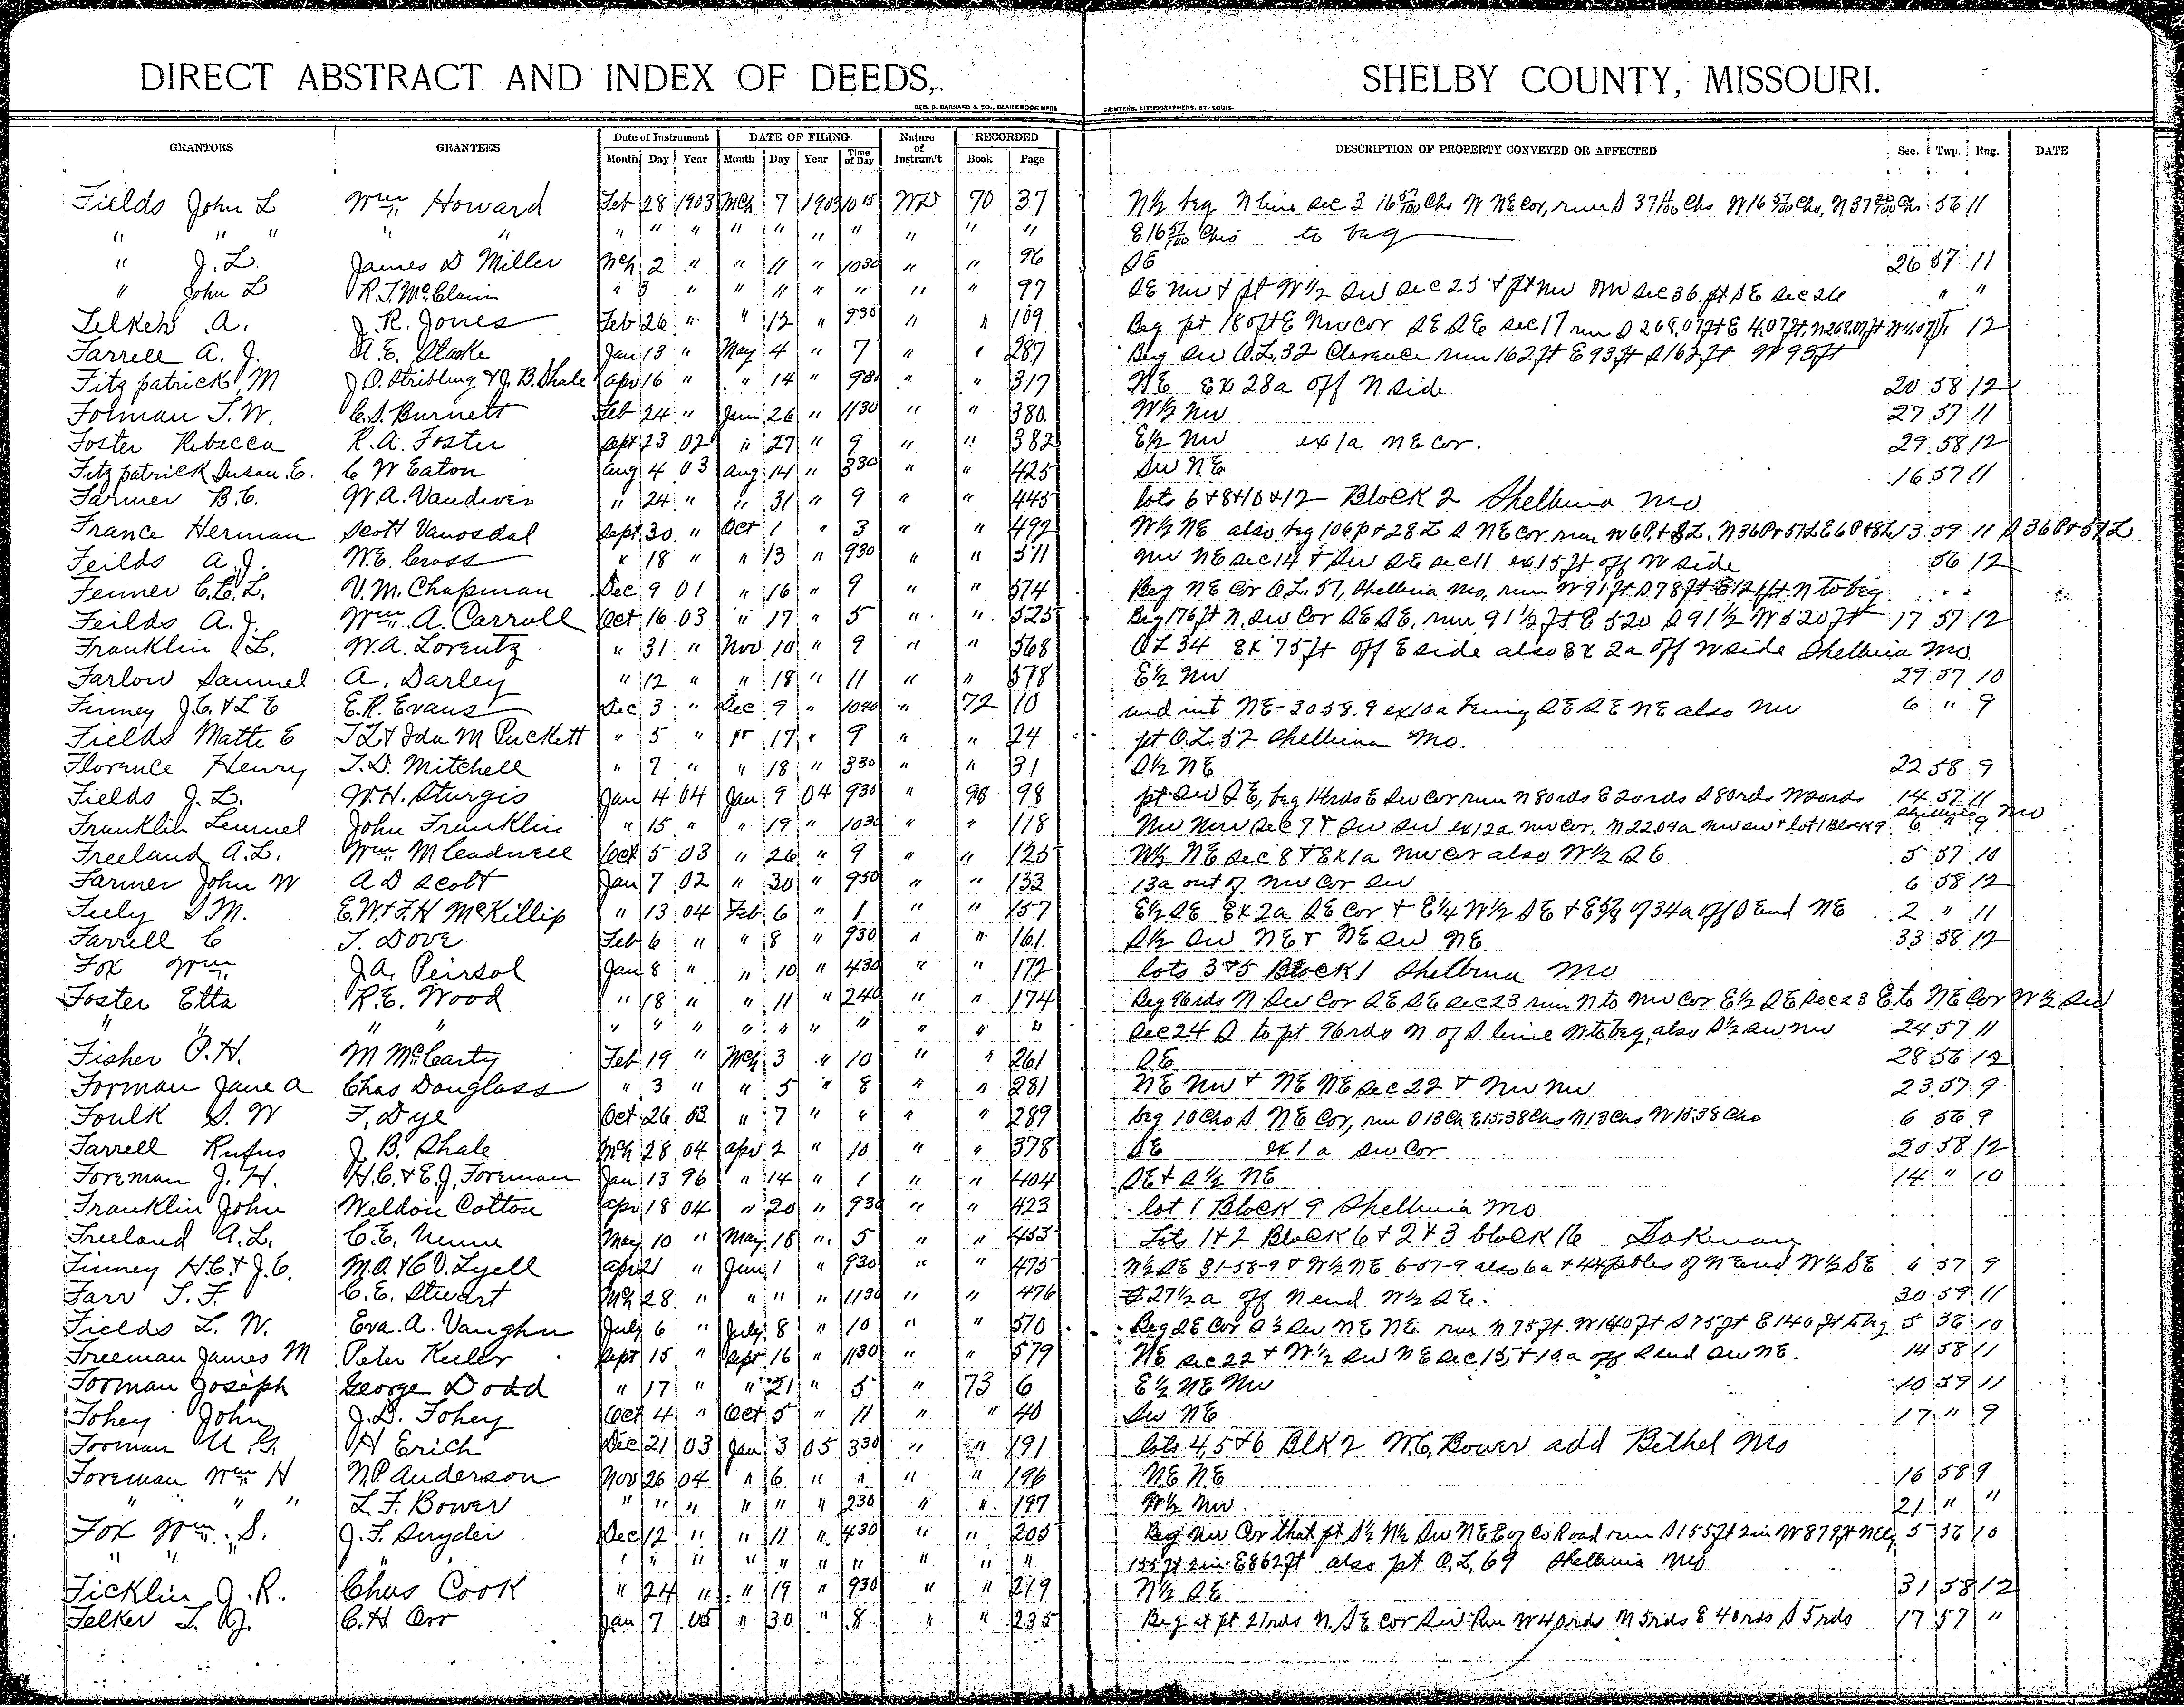 DIRECT ABSTRACT AND INDEX OF DEEDS, SHELBY COUNTY, MISSOURI.
GEO. D. BARNARD & CO., BLANK BOOK MFRS PRINTERS, LITHOGRAPHERS, ST. LOUIS.
GRANTORS GRANTEES Date of Instrument DATE OF FILING Nature of Instrum't RECORDED DESCRIPTION OF PROPERTY CONVEYED OR AFFECTED Sec. Twp. Rng. DATE
Month Day Year Month Day Year Time of Day Book Page
Fields John L Wm Howard Feb 28 1903 Mch 7 1903 10 15 WD 70 37 N½ beg N line sec 3 16 57/100 Chs W NE Cor, run S 37 Chs W 16 57/100 Chs, N 37 Chs 56 11
" " " " " " " " " " " " " " " E 16 57/100 Chs to beg
" J. L. James D Miller Mch 2 " " 11 " 10 30 " " 96 SE 26 57 11
" John L R. T. McClain " 3 " " 11 " " " " 97 SE NW & pt W½ SW sec 25 & pt NW NW Sec 36. pt SE sec 26 " "
Felker A. J. R. Jones Feb 26 " " 12 " 9 30 " " 109 Beg pt 180 ft E NW Cor SE SE sec 17 run S 268.07 ft E 407 ft. N 268.07 ft W 407 ft 12
Farrell A. J. A. E. Starke Jan 13 " May 4 " 7 " " 287 Beg SW O.L. 32 Clarence run 162 ft E 93 ft S 162 ft W 93 ft
Fitzpatrick M J. O. Stribling & J. B. Shale Apr 16 " " 14 " 9 30 " " 317 NE Ex 28a off N side 20 58 12
Forman T. W. C. S. Burnett Feb 24 " Jun 26 " 11 30 " " 380 W½ NW 27 57 11
Foster Rebecca R. A. Foster Sept 23 02 " 27 " 9 " " 382 E½ NW ex 1a NE Cor. 29 58 12
Fitzpatrick Susan E. C W Eaton Aug 4 03 Aug 14 " 3 30 " " 425 SW NE 16 57 11
Farmer B. C. W. A. Vandiver " 24 " " 31 " 9 " " 445 lots 6 & 8 & 10 & 12 Block 2 Shelbina Mo
France Herman Scott Vanosdal Sept 30 " Oct 1 " 3 " " 492 W½ NE also beg 106 p & 28 L S NE Cor run W 6 P. & 8 L. N 36 P & 57 L E 6 P & 8 L 13 59 11 S 36 P & 57 L
Feilds A. J. W. E. Cross " 18 " " 13 " 9 30 " " 511 NW NE sec 14 & SW SE sec 11 ex 15 ft off W side 56 12
Fenner C. E. L. V. M. Chapman Dec 9 01 " 16 " 9 " " 574 Beg NE Cor O.L. 57, Shelbina Mo, run W 91 ft S 78 ft E 121 ft N to beg
Feilds A. J. Wm A. Carroll Oct 16 03 " 17 " 5 " " 525 Beg 176 ft N. SW Cor SE SE, run 91½ ft E 520 S 91½ W 520 ft 17 57 12
Franklin L. W. A. Lorentz " 31 " Nov 10 " 9 " " 568 OL 34 Ex 75 ft off E side also Ex 2a off W side Shelbina Mo
Farlow Samuel A. Darley " 12 " " 18 " 11 " " 578 E½ NW 29 57 10
Finney J. C. & L E E. R. Evans Dec 3 " Dec 9 " 10 40 " 72 10 und int NE-30.58.9 ex 10a being SE SE NE also NW 6 " 9
Fields Matte E T. L & Ida M Puckett " 5 " " 17 " 9 " " 24 pt O.L. 52 Shelbina Mo.
Florence Henry T. D. Mitchell " 7 " " 18 " 3 30 " " 31 S½ NE 22 58 9
Fields J. L. W. H. Sturgis Jan 4 04 Jan 9 04 9 30 " " 98 pt SW SE, beg 14 rds E SW Cor run N 80 rds E 20 rds S 80 rds W 20 rds 14 57 11
Franklin Lemuel John Franklin " 15 " " 19 " 10 30 " " 118 NW NW Sec 7 & SW SW ex 12a NW Cor, N 22.04a NW SW & lot 1 Block 9 Shelbina Mo 6 " 9
Freeland A. L. Wm M Cadwell Oct 5 03 " 26 " 9 " " 125 W½ NE Sec 8 & Ex 1a NW Cor also W½ SE 5 57 10
Farmer John W A D Scott Jan 7 02 " 30 " 9 50 " " 133 13a out of NW Cor SW 6 58 12
Feely S M. E. W. & F. H McKillip " 13 04 Feb 6 " 1 " " 157 E½ SE Ex 2a SE Cor & E¼ W½ SE & E⅝ of 34a off S End NE 2 " 11
Farrell C T. Dove Feb 6 " " 8 " 9 30 " " 161 S½ SW NE & NE SW NE 33 58 12
Fox Wm J. A. Peirsol Jan 8 " " 10 " 4 30 " " 172 lots 3 & 5 Block 1 Shelbina Mo
Foster Etta R. E. Wood " 18 " " 11 " 2 40 " " 174 Beg 96 rds N SW Cor SE SE sec 23 run N to NW Cor E½ SE Sec 23 E to NE Cor W½ SW
" " " " " " " " " " " " " " Sec 24 S to pt 96 rds N of S line W to beg, also S½ SW NW 24 57 11
Fisher P. H. M McCarty Feb 19 " Mch 3 " 10 " " 261 SE 28 56 12
Forman Jane A Chas Douglass " 3 " " 5 " 8 " " 281 NE NW & NE NE Sec 22 & NW NW 23 57 9
Foulk S. W F. Dye Oct 26 03 " 7 " " " " 289 beg 10 Chs S NE Cor, run S 13 Ch E 15.38 Chs N 13 Chs W 15.38 Chs 6 56 9
Farrell Rufus J. B. Shale Mch 28 04 Apr 2 " 10 " " 378 SE ex 1a SW Cor 20 58 12
Foreman J. H. H. C. & E. J. Foreman Jan 13 96 " 14 " 1 " " 404 SE & S½ NE 14 " 10
Franklin John Weldon Cotton Apr 18 04 " 20 " 9 30 " " 423 lot 1 Block 9 Shelbina Mo
Freeland A. L. C. E. Nunn May 10 " May 18 " 5 " " 453 Lots 1 & 2 Block 6 & 2 & 3 block 16 Lakenan
Finney H. C. & J. C. M. O. & C. V. Lyell Apr 21 " Jun 1 " 9 30 " " 475 W½ SE 31-58-9 & W½ NE 6-57-9 also 6a & 44 poles of N end W½ SE 6 57 9
Farr T. F. C. E. Stewart Mch 28 " " " " 11 30 " " 476 27½ a off N end W½ SE. 30 59 11
Fields L. W. Eva. A. Vaughn July 6 " July 8 " 10 " " 570 Beg SE Cor S½ SW NE NE run N 75 ft. W 140 ft S 75 ft E 140 ft to beg 5 56 10
Freeman James M Peter Keeler Sept 15 " Sept 16 " 11 30 " " 579 NE sec 22 & W½ SW NE Sec 15, & 10a off S end SW NE. 14 58 11
Forman Joseph George Dodd " 17 " " 21 " 5 " 73 6 E½ NE NW 10 59 11
Fohey John J. D. Fohey Oct 4 " Oct 5 " 11 " " 40 SW NE 17 " 9
Forman U. G. H Erich Dec 21 03 Jan 3 05 3 30 " " 191 lots 4, 5 & 6 Blk 2 W. C. Bower add Bethel Mo
Foreman Wm H N. P Anderson Nov 26 04 " 6 " " " " 196 NE NE 16 58 9
" " " L. F. Bower " " " " " " 2 30 " " 197 W½ NW 21 " "
Fox Wm. S. J. F. Snyder Dec 12 " " 11 " 4 30 " " 205 Beg NW Cor that pt S½ N½ SW NE E of Co Road run S 155 ft 2 in W 879 ft 5 56 10
" " " " " " " " " " " " " 155 ft 2 in E 862 ft also pt O.L. 69 Shelbina Mo
Ficklin J. R. Chas Cook " 24 " " 19 " 9 30 " " 219 N½ SE 31 58 12
Felker T. J. C. H Orr Jan 7 05 " 30 " 8 " " 235 Beg at pt 21 rds N. SE Cor SW Run W 40 rds N 5 rds E 40 rds S 5 rds 17 57 "